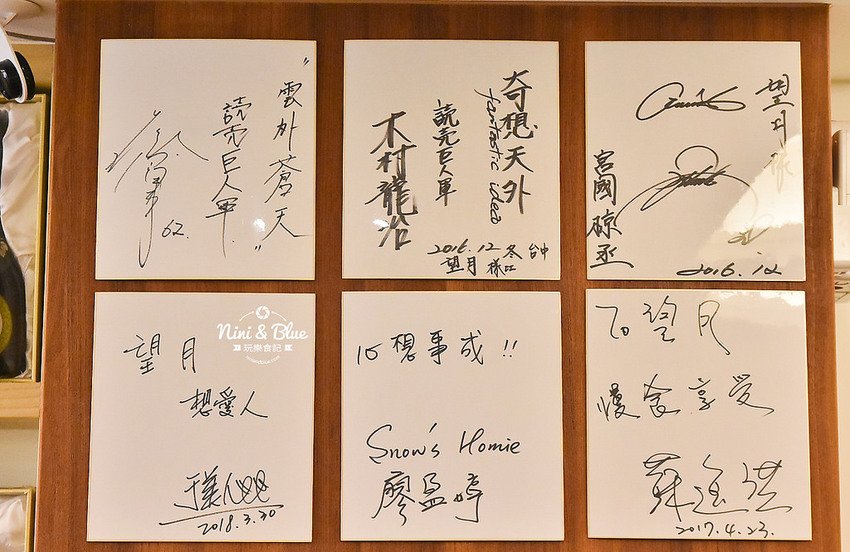 "雲外蒼天"
読売巨人軍
62.
奇想天外
fantastic idea
読売巨人軍
木村龍治
2016.12 冬 台中
望月 様江
望月様
宮國椋丞
2016.12
望月
想愛人
2018.3.30
Nini & Blue
玩樂食記
心想事成 !!
Snow's Homie
廖盈婷
To 望月
慢食享受
2017.4.23.